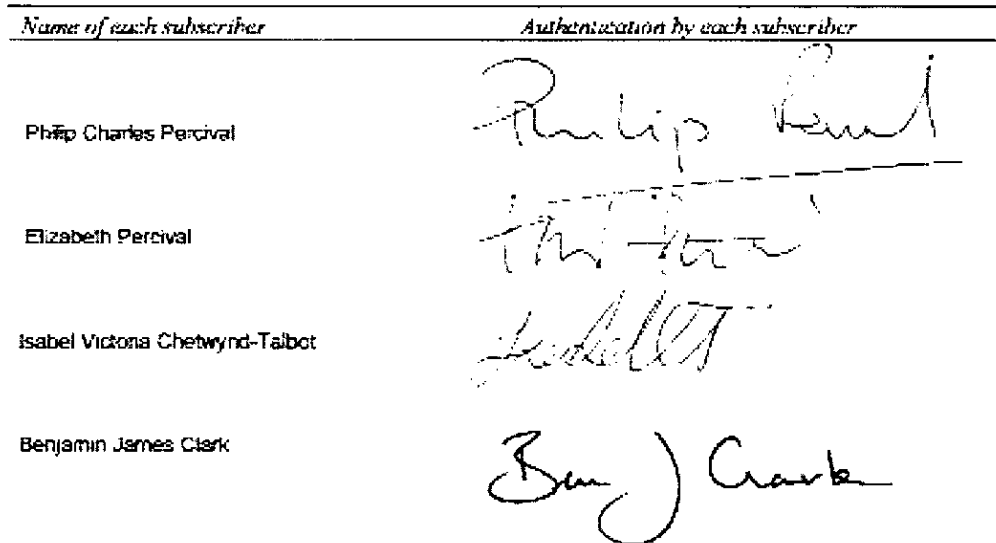 Name of each subscriber Authentication by each subscriber
Philip Charles Percival Philip
Elizabeth Percival
Isabel Victoria Chetwynd-Talbot
Benjamin James Clark Ben J Clark